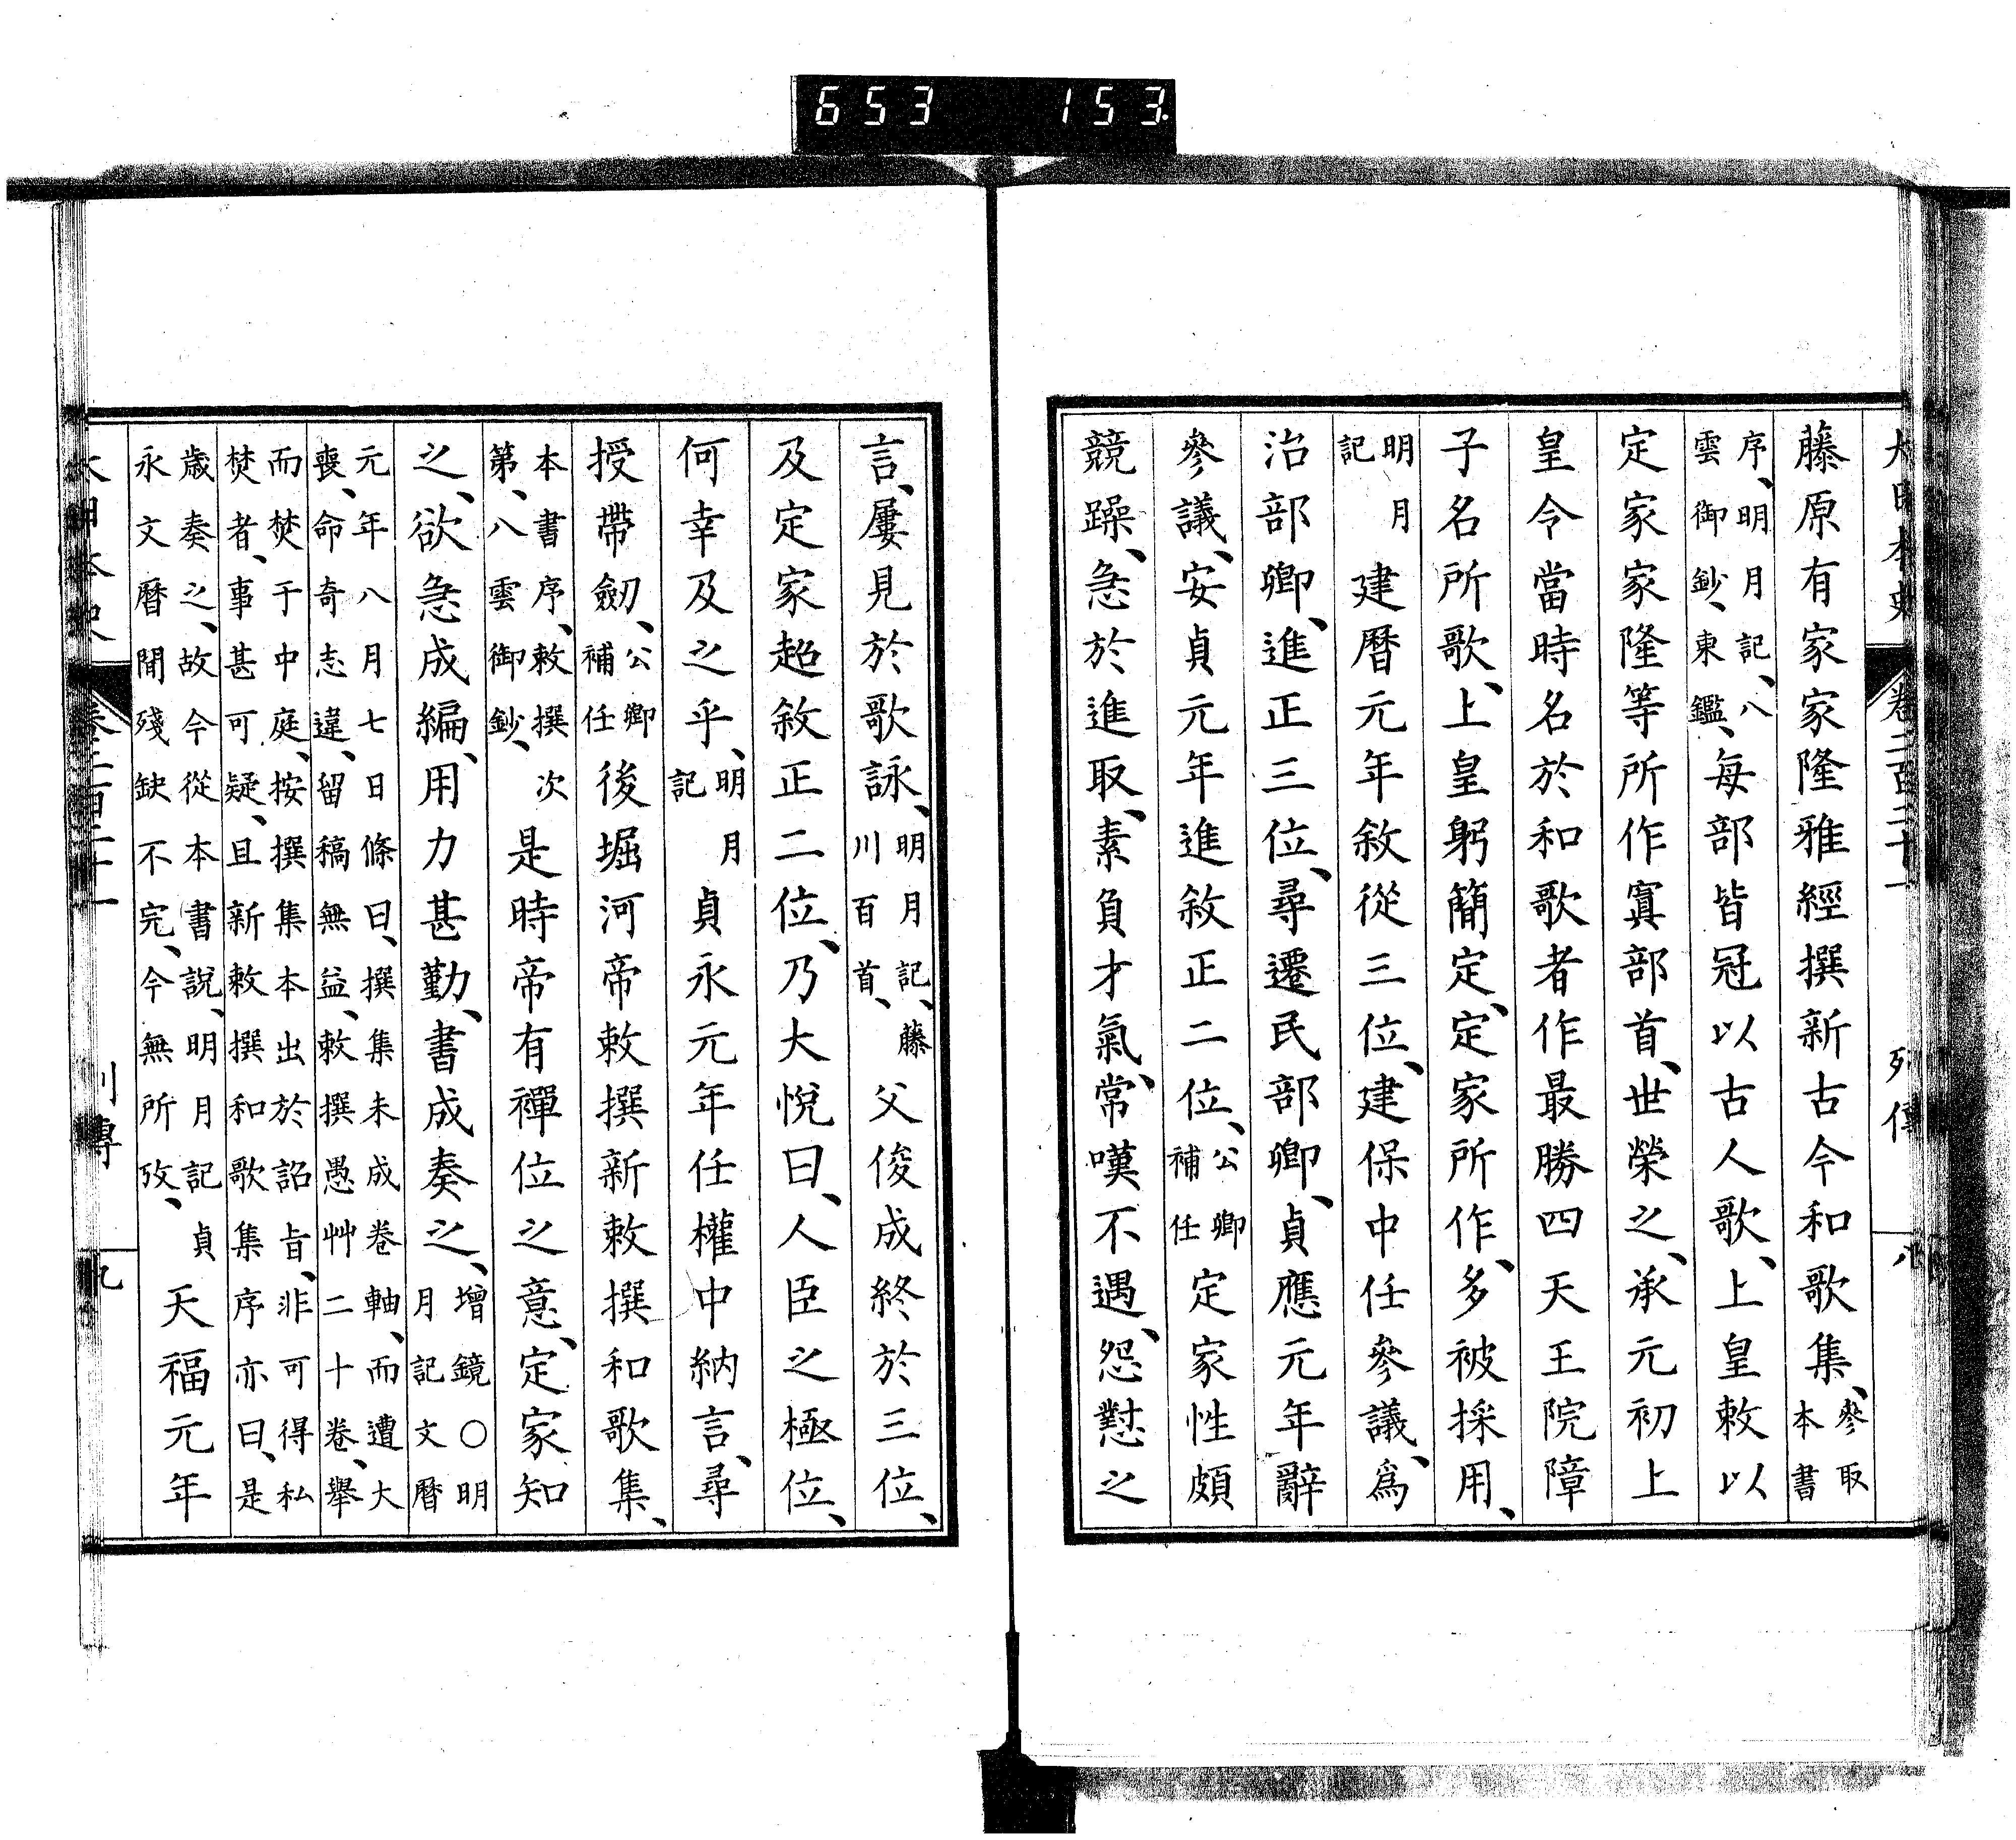 653 153.
大日本史 卷二百二十一 列傳 八
藤原有家家隆雅經撰新古今和歌集、參取本書
序、明月記、八雲御鈔、東鑑、每部皆冠以古人歌、上皇敕以
定家家隆等所作寘部首、世榮之、承元初上
皇令當時名於和歌者作最勝四天王院障
子名所歌、上皇躬簡定、定家所作、多被採用、
明月記建曆元年敘從三位、建保中任參議、爲
治部卿、進正三位、尋遷民部卿、貞應元年辭
參議、安貞元年進敘正二位、公卿補任定家性頗
競躁、急於進取、素負才氣、常嘆不遇、怨懟之
言、屢見於歌詠、明月記、藤川百首、父俊成終於三位、
及定家超敘正二位、乃大悅曰、人臣之極位、
何幸及之乎、明月記貞永元年任權中納言、尋
授帶劒、公卿補任後堀河帝敕撰新敕撰和歌集、
本書序、敕撰次第、八雲御鈔、是時帝有禪位之意、定家知
之、欲急成編、用力甚勤、書成奏之、增鏡○明月記文曆
元年八月七日條曰、撰集未成卷軸、而遭大喪、命奇志違、留稿無益、敕撰愚艸二十卷、擧
而焚于中庭、按撰集本出於詔旨、非可得私焚者、事甚可疑、且新敕撰和歌集序亦曰、是
歲奏之、故今從本書說、明月記貞永文曆閒殘缺不完、今無所攷、天福元年
大日本史 卷二百二十一 列傳 九